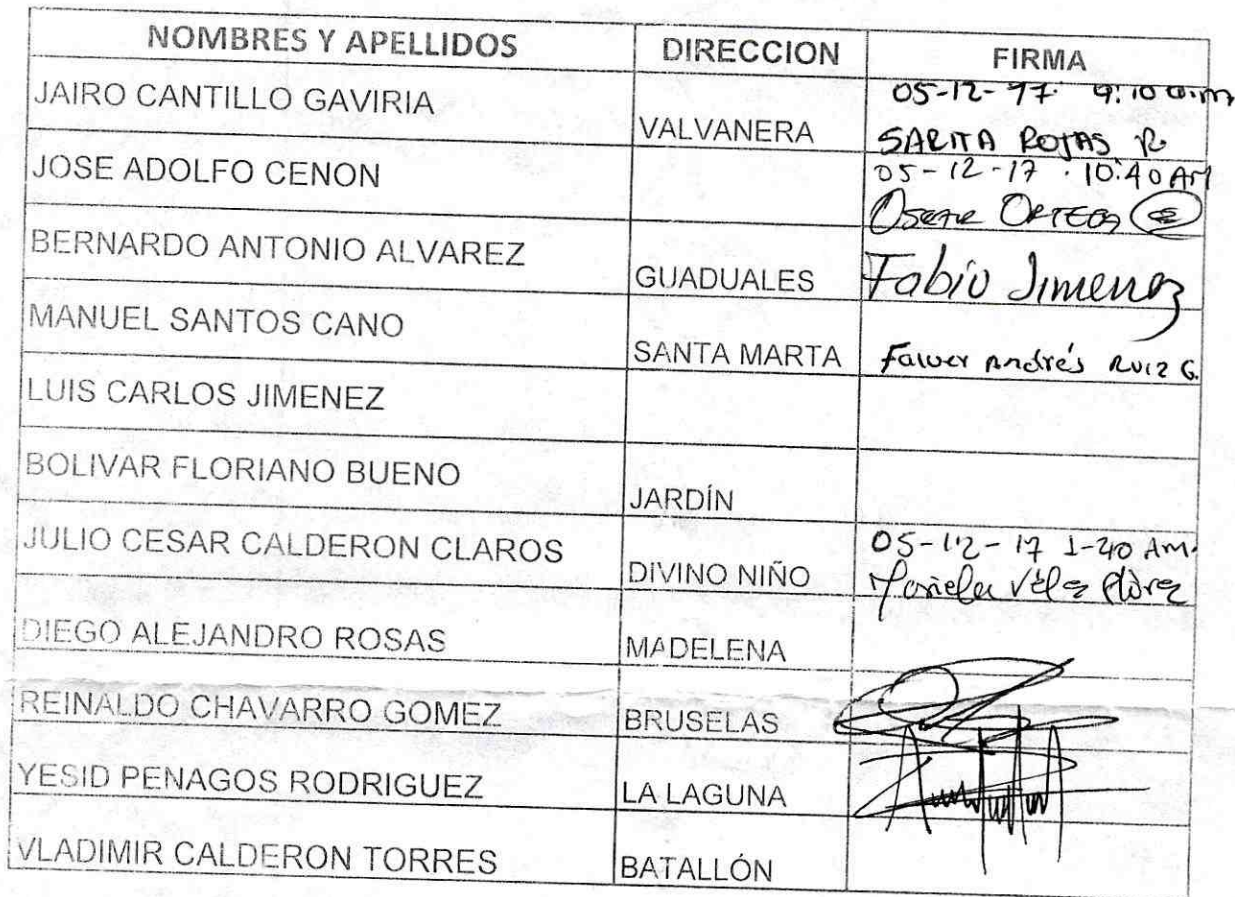 NOMBRES Y APELLIDOS DIRECCION FIRMA
JAIRO CANTILLO GAVIRIA VALVANERA 05-12-97. 9:10 a.m
SARITA ROJAS R.
JOSE ADOLFO CENON 05-12-17 . 10:40 AM
OSCAR ORTEGA
BERNARDO ANTONIO ALVAREZ GUADUALES Fabio Jimenez
MANUEL SANTOS CANO SANTA MARTA Faiver Andrés Ruiz G.
LUIS CARLOS JIMENEZ
BOLIVAR FLORIANO BUENO JARDÍN
JULIO CESAR CALDERON CLAROS DIVINO NIÑO 05-12-17 1-20 AM.
Mariela Vélez Flórez
DIEGO ALEJANDRO ROSAS MADELENA
REINALDO CHAVARRO GOMEZ BRUSELAS
YESID PENAGOS RODRIGUEZ LA LAGUNA
VLADIMIR CALDERON TORRES BATALLÓN